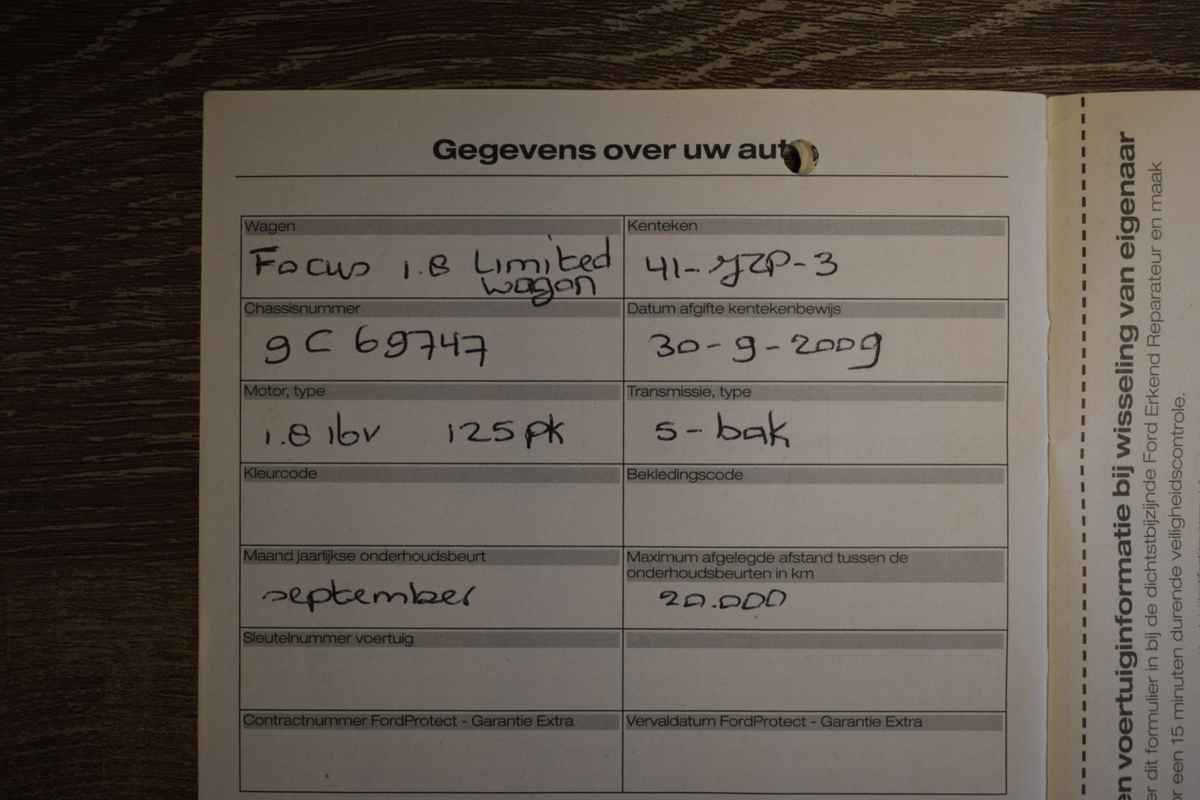 Gegevens over uw auto
Wagen
Focus 1.8 Limited
wagon
Kenteken
41-JZP-3
Chassisnummer
9C 69747
Datum afgifte kentekenbewijs
30-9-2009
Motor, type
1.8 16v 125pk
Transmissie, type
5-bak
Kleurcode
Bekledingscode
Maand jaarlijkse onderhoudsbeurt
september
Maximum afgelegde afstand tussen de
onderhoudsbeurten in km
20.000
Sleutelnummer voertuig
Contractnummer FordProtect - Garantie Extra
Vervaldatum FordProtect - Garantie Extra
voertuiginformatie bij wisseling van eigenaar
dit formulier in bij de dichtstbijzijnde Ford Erkend Reparateur en maak
een 15 minuten durende veiligheidscontrole.